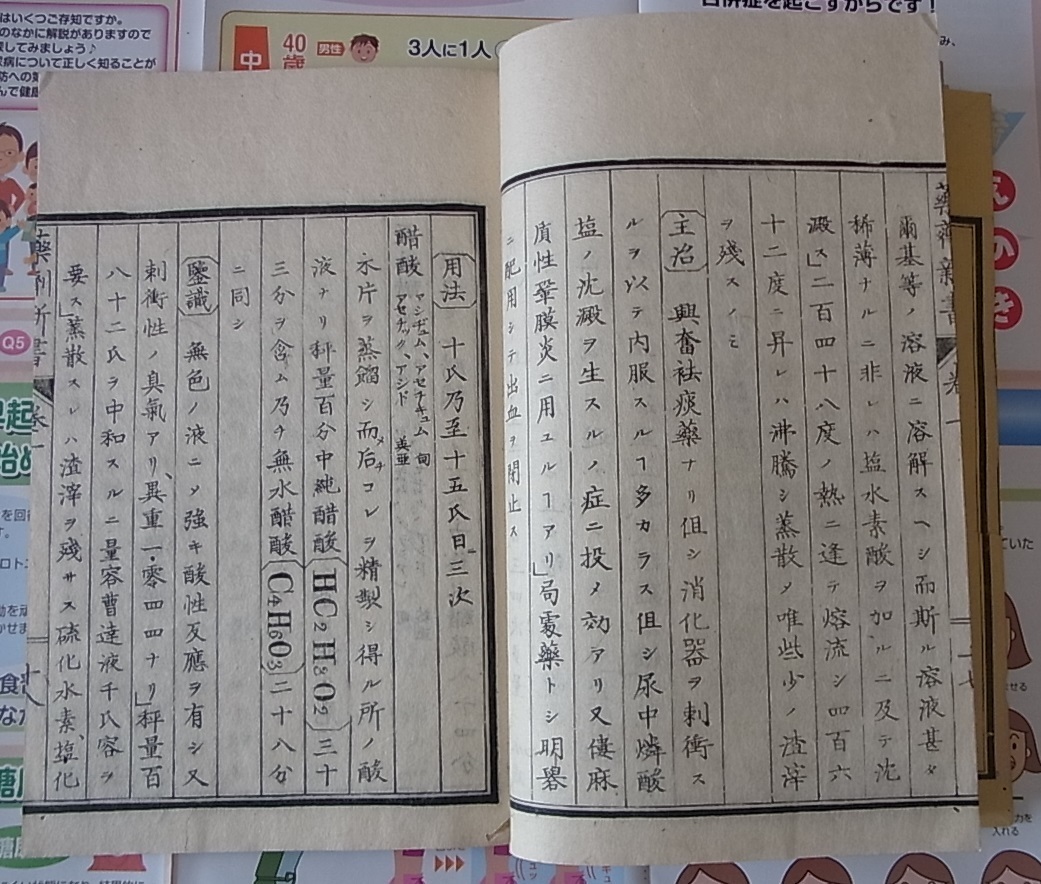 爾基等ノ溶液ニ溶解スヘシ而斯ル溶液甚タ
稀薄ナルニ非レハ塩水素酸ヲ加ルニ及テ沈
澱ス」二百四十八度ノ熱ニ逢テ熔流シ四百六
十二度ニ昇レハ沸騰シ蒸散メ唯些少ノ渣滓
ヲ残スノミ
主治 興奮袪痰藥ナリ但シ消化器ヲ刺衝ス
ルヲ以テ内服スルヿ多カラス但シ尿中燐酸
塩ノ沈澱ヲ生スルノ症ニ投メ効アリ又僂麻
質性鞏膜炎ニ用ユルヿアリ」局處藥トシ明礬
ニ配用シテ出血ヲ閉止ス
用法 十氏乃至十五氏日ニ三次
醋酸 アシヂュム、アセチキュム
アセチック、アシド
氷片ヲ蒸餾シ而后コレヲ精製シ得ル所ノ酸
液ナリ秤量百分中純醋酸 HC₂H₃O₂ 三十
三分ヲ含ム乃チ無水醋酸 C₄H₆O₃ 二十八分
ニ同シ
鑒識 無色ノ液ニメ強キ酸性反應ヲ有シ又
刺衝性ノ臭氣アリ、異重一・零四四ナリ」秤量百
八十二氏ヲ中和スルニ量容曹達液千氏容ヲ
要ス」蒸散スレハ渣滓ヲ残サス硫化水素、塩化
藥劑新書 卷一
はいくつご存知ですか。
のなかに解説がありますので
してみましょう♪
病について正しく知ることが
40歳
男性
3人に1人
合併症を起こすからです!
Q5
早起
始め